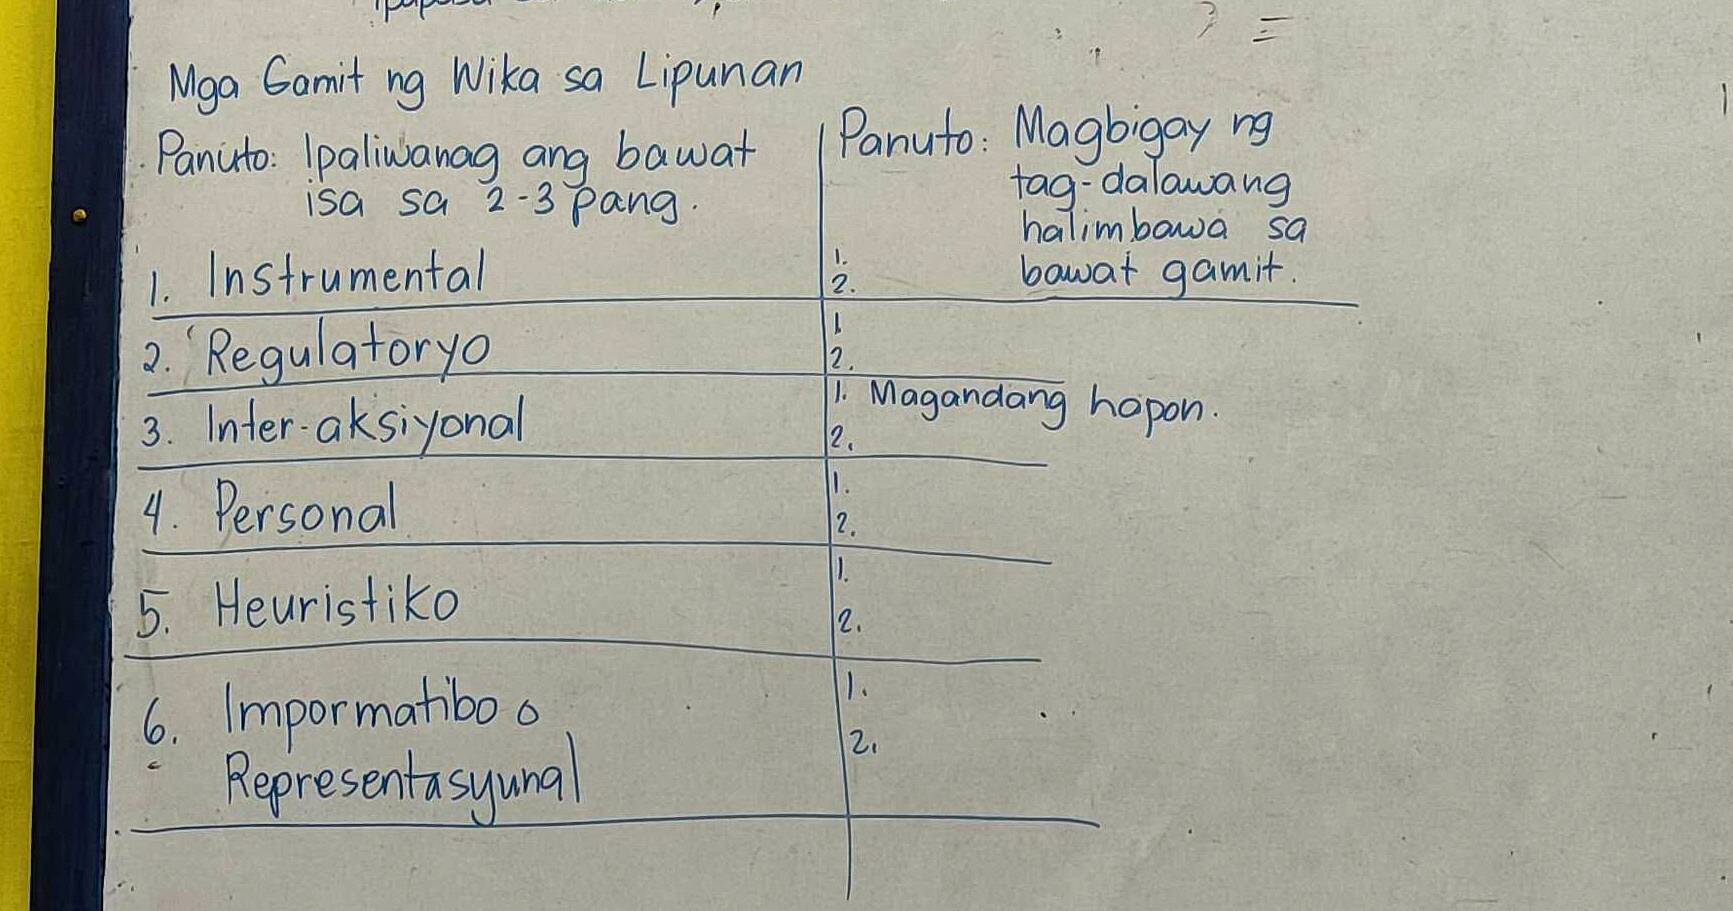 Mga Gamit ng Wika sa Lipunan
Panuto: Ipaliwanag ang bawat
isa sa 2-3 pang.
Panuto: Magbigay ng
tag-dalawang
halimbawa sa
bawat gamit.
1. Instrumental
1.
2.
2. Regulatoryo
1
2.
3. Inter-aksiyonal
1. Magandang hapon.
2.
4. Personal
1.
2.
5. Heuristiko
1.
2.
6. Impormatibo o
Representasyunal
1.
2.